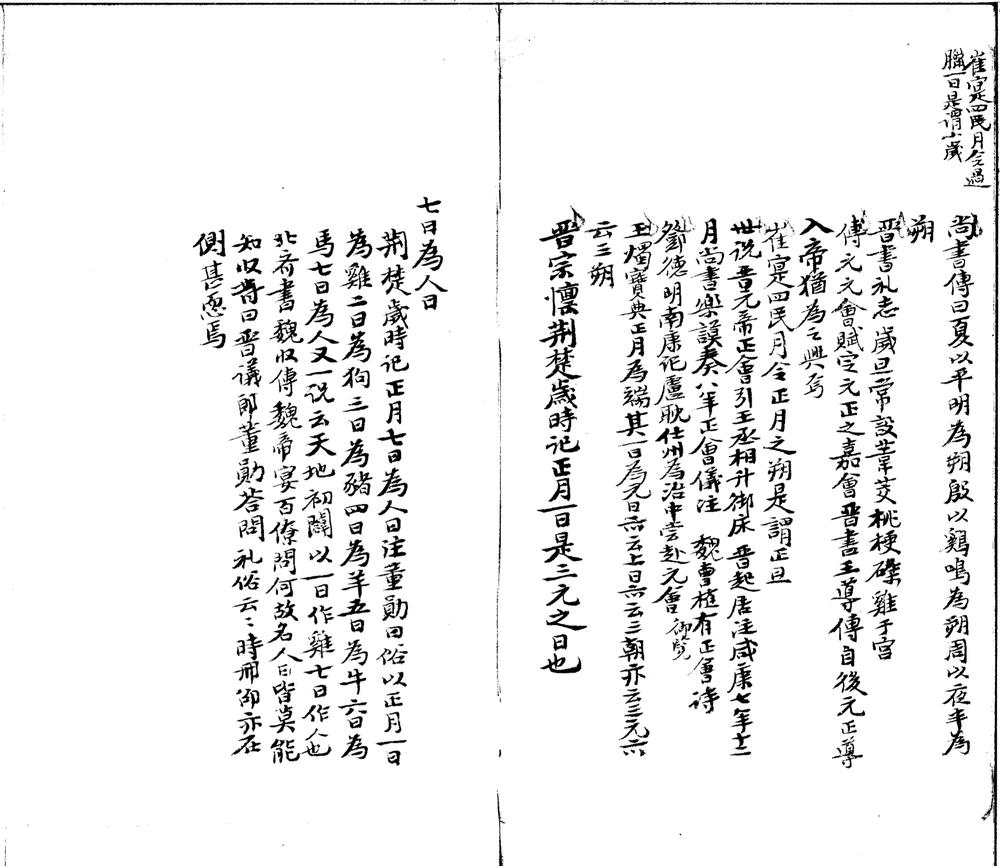 崔寔四民月令過
臘一日是謂小歲
尚書傳曰夏以平明為朔殷以鷄鳴為朔周以夜半為
朔
晋書礼志歲旦常設葦茭桃梗磔雞于宫
傅元元會賦定元正之嘉會晋書王導傳自後元正導
入帝猶為之興焉
崔寔四民月令正月之朔是謂正旦
世説晋元帝正會引王丞相升御床 晋起居注咸康七年十二
月尚書樂謨奏八年正會儀注 魏曹植有正會诗
鄧德明南康记盧耽仕州為治中嘗赴元會御覽
玉燭寶典正月為端其一日為元日亦云上日亦云三朝亦云三元亦
云三朔
晋宗懍荆楚歲時记正月一日是三元之日也
七日為人日
荆楚歲時记正月七日為人日注董勛曰俗以正月一日
為雞二日為狗三日為豬四日為羊五日為牛六日為
馬七日為人又一说云天地初闢以一日作雞七日作人也
北齐書魏收傳魏帝宴百僚問何故名人日皆莫能
知收對曰晋議郎董勛荅問礼俗云〻時邢卲亦在
側甚恧焉